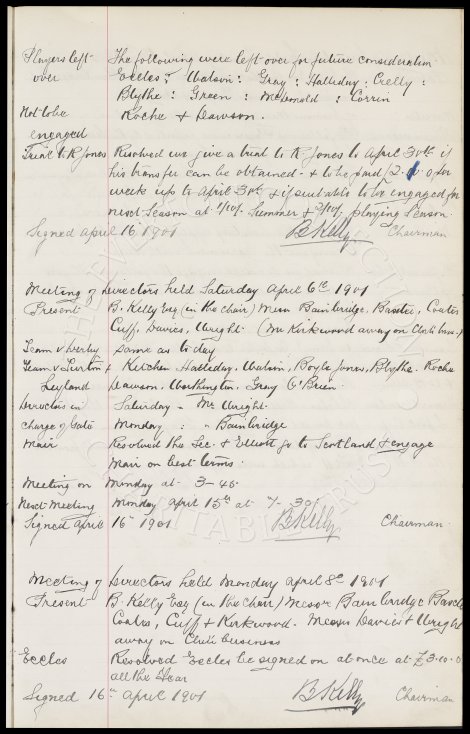 Players left The following were left over for future consideration
over Eccles: Watson: Gray: Halliday: Crelly:
Blythe: Green: McDonald: Corrin
Not to be Roche & Dawson.
engaged
Trial to R Jones Resolved we give a trial to R Jones to April 30th if
his transfer can be obtained - & to be paid for
week up to April 30th & if suitable to be engaged for
next Season at Summer & playing Season.
Signed April 16 1901 B Kelly Chairman
Meeting of Directors held Saturday April 6th 1901
Present B. Kelly Esq (in the chair) Messrs Bainbridge, Baxter, Coates
Cuff, Davies, Wright (Mr Kirkwood away on Club's bus.)
Team v Derby same as to day
Team v Turton & Kitchen Halliday, Watson, Boyle Jones, Blythe. Roche
Leyland Dawson, Worthington. Gray O'Brien.
Directors in Saturday - Mr Wright.
charge of Gate Monday: " Bainbridge
Mair Resolved the Sec. & Elliott go to Scotland & engage
Mair on best terms.
Meeting on Monday at 3-45.
Next Meeting Monday April 15th at 7-30.
Signed April 16th 1901 B Kelly Chairman
Meeting of Directors held Monday April 8th 1901
Present B. Kelly Esq (in the Chair) Messrs Bainbridge
Coates, Cuff & Kirkwood. Messrs Davies & Wright
away on Club business
Eccles Resolved Eccles be signed on at once at £3-10-0
all the Year
Signed 16th April 1901 B Kelly Chairman